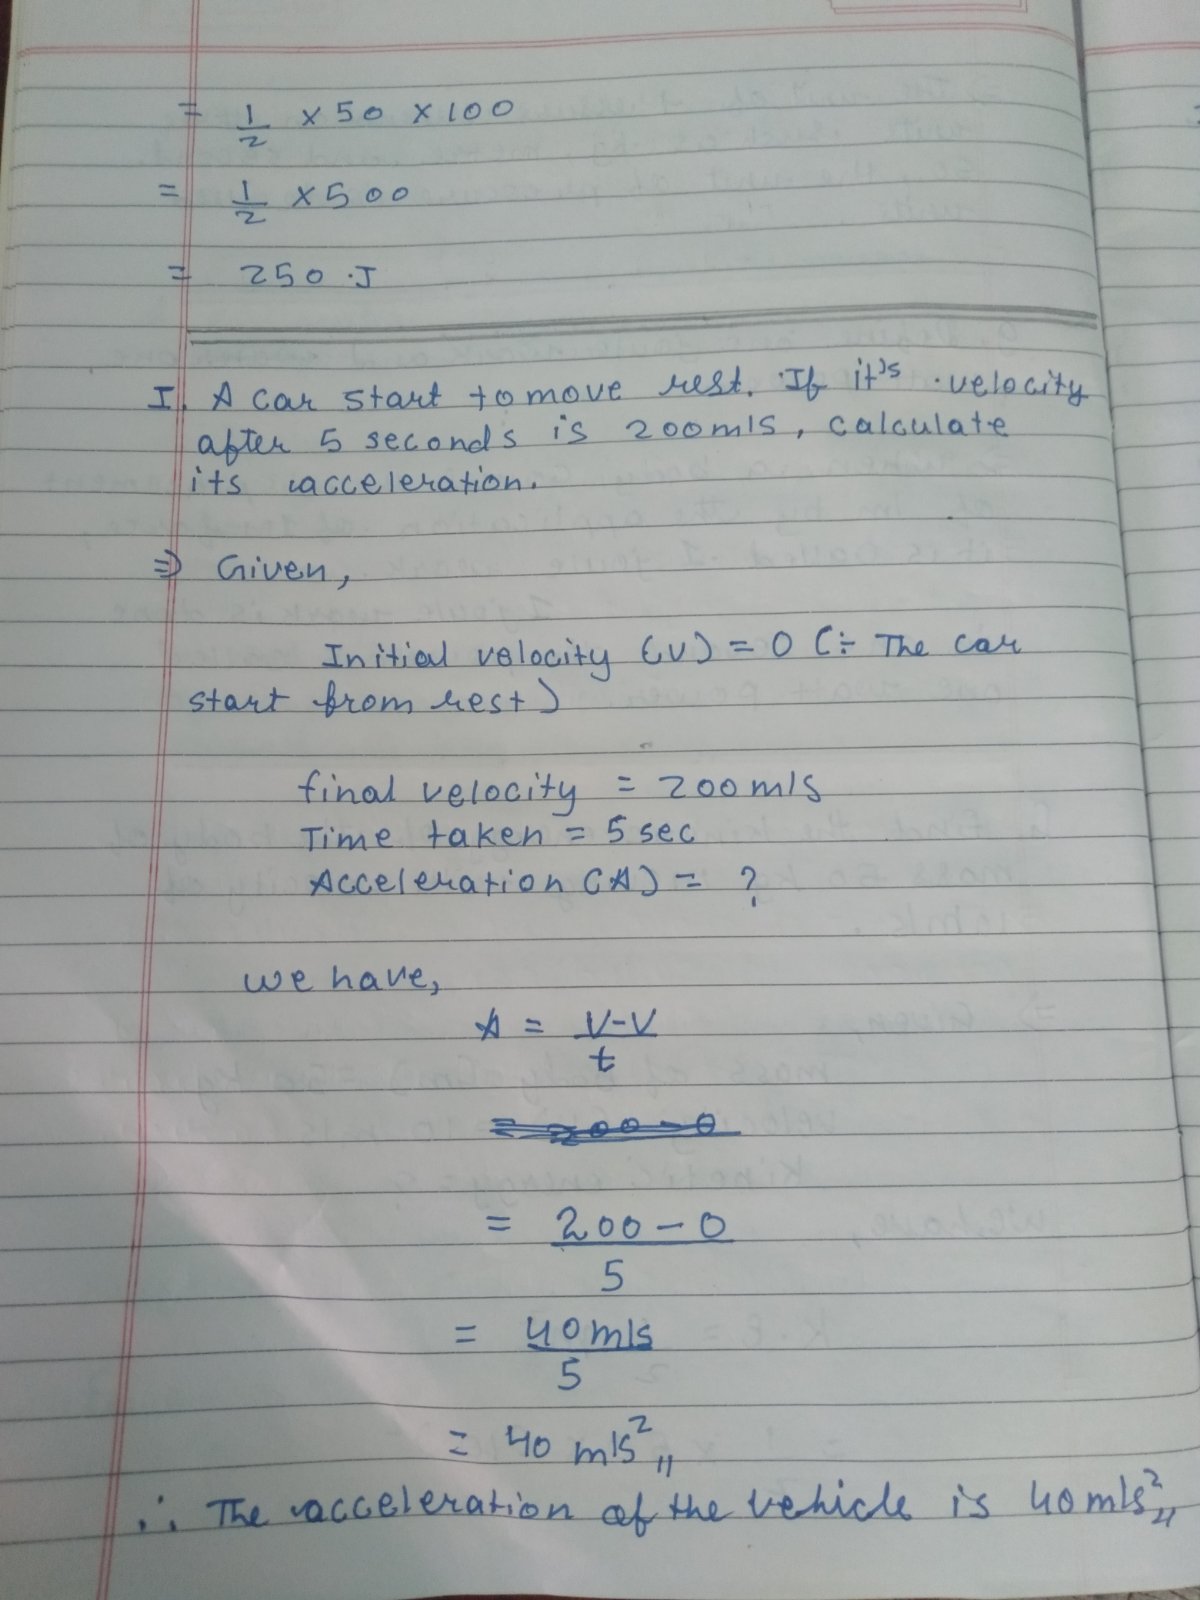 = 1/2 × 50 × 100
= 1/2 × 500
= 250 .J
I. A car start to move rest. If it's velocity
after 5 seconds is 200m/s, calculate
its acceleration.
⇒ Given,
Initial velocity (U) = 0 (∵ The car
start from rest)
final velocity = 200m/s
Time taken = 5 sec
Acceleration (A) = ?
we have,
A = V-V/t
= 200-0
= 200-0/5
= 40m/s/5
= 40 m/s²,,
∴ The acceleration of the vehicle is 40m/s²,,